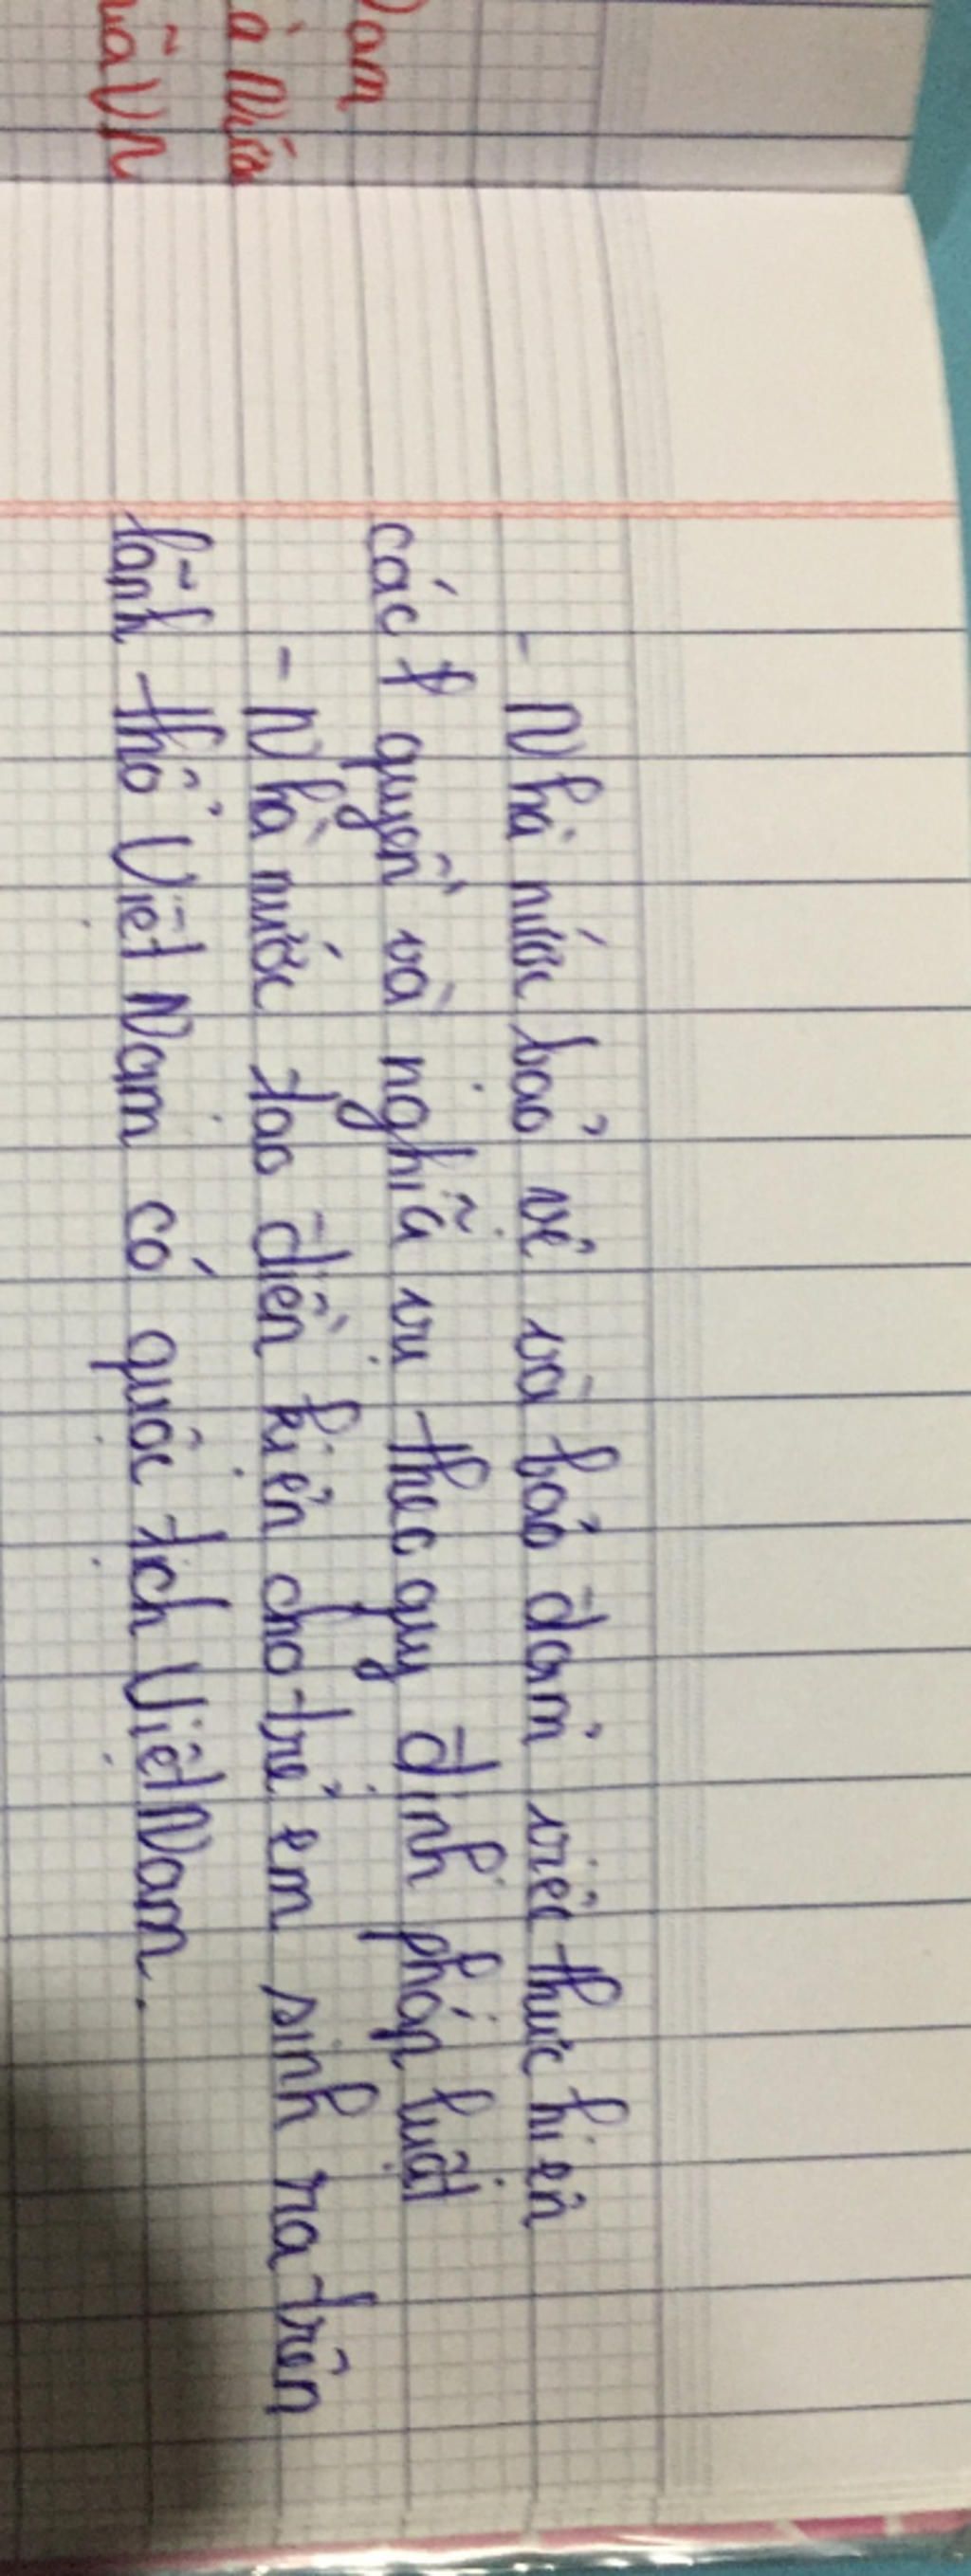 Nam
à Nước
của VN
- Nhà nước bảo vệ và bảo đảm việc thực hiện
các quyền và nghĩa vụ theo quy định pháp luật
- Nhà nước tạo điền kiện cho trẻ em sinh ra trên
lãnh thổ Việt Nam có quốc tịch Việt Nam.